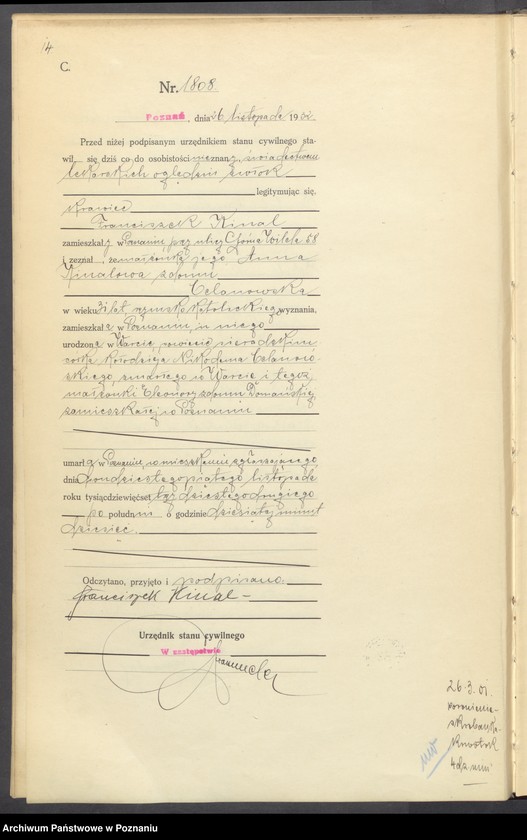 14
C.
Nr. 1808.
Poznań, dnia 26 listopada 1932.
Przed niżej podpisanym urzędnikiem stanu cywilnego sta-
wił się dziś co do osobistości nieznany, świadectwem
lekarskich oględzin zwłok
legitymując się,
krawiec
Franciszek Kinal
zamieszkały w Poznaniu, przy ulicy Górna Wilda 58
i zeznał, że małżonka jego Anna
Kinalowa z domu
Celanowska
w wieku 31 lat, rzymsko katolickiego wyznania,
zamieszkała w Poznaniu, u niego
urodzona w Warcie, powiat sieradzkim
córka kołodzieja Nikodema Celanow-
skiego zmarłego w Warcie i tegoż
małżonki Eleonory z domu Domańskiej
zamieszkałej w Poznaniu
umarła w Poznaniu, w mieszkaniu zgłaszającego
dnia dwudziestego piątego listopada
roku tysiącdziewięćset trzydziestego drugiego
po południu o godzinie dziesiątej minut
dziesięć.
Odczytano, przyjęto i podpisano.
Franciszek Kinal
Urzędnik stanu cywilnego
W zastępstwie
26.3.01.
4 dz.
Archiwum Państwowe w Poznaniu